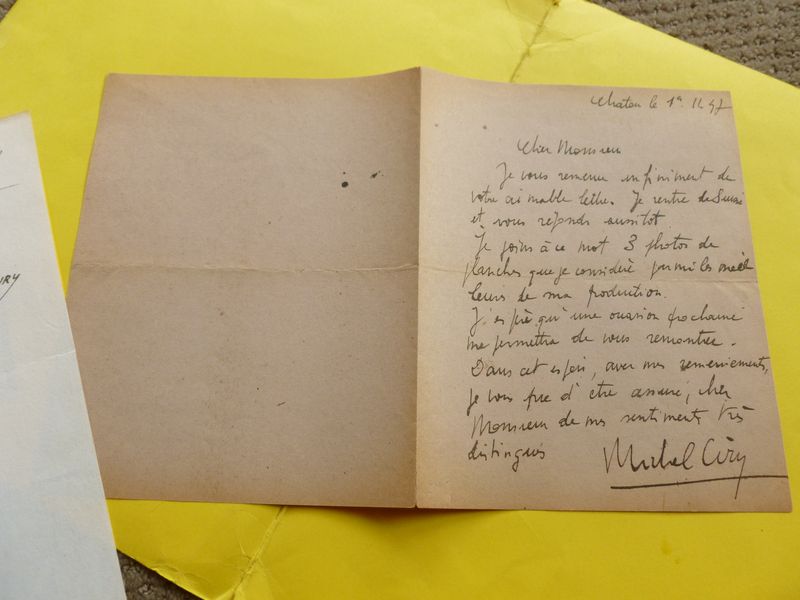 Chatou le 1er 11 47
Cher Monsieur
Je vous remercie infiniment de
votre aimable lettre. Je rentre de Suisse
et vous réponds aussitôt
Je joins à ce mot 3 photos de
planches que je considère parmi les meil
leurs de ma production.
J'espère qu'une occasion prochaine
me permettra de vous rencontrer.
Dans cet espoir, avec mes remerciements,
je vous prie d'être assuré, cher
Monsieur de mes sentiments très
distingués
Michel Ciry